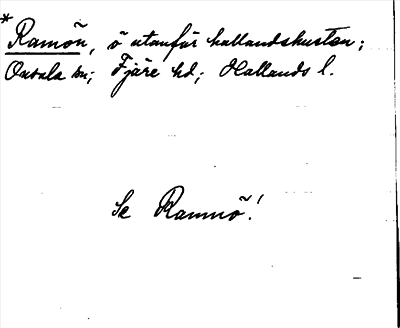 *
Ramön, ö utanför hallandskusten;
Onsala sn; Fjäre hd; Hallands l.
Se Ramnö!